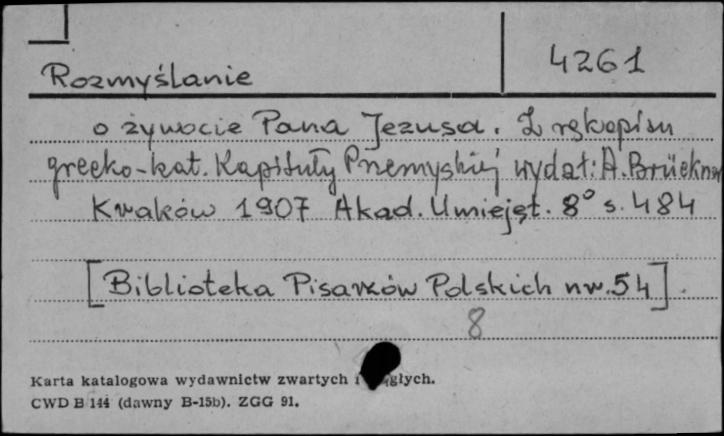 Rozmyślanie
4261
o żywocie Pana Jezusa. Z rękopisu
grecko-kat. Kapituły Przemyskiej wydał: A. Brückner
Kraków 1907 Akad. Umiejęt. 8° s. 484
[Biblioteka Pisarzów Polskich nr. 54].
8
Karta katalogowa wydawnictw zwartych i
CWD B 144 (dawny B-15b). ZGG 91.